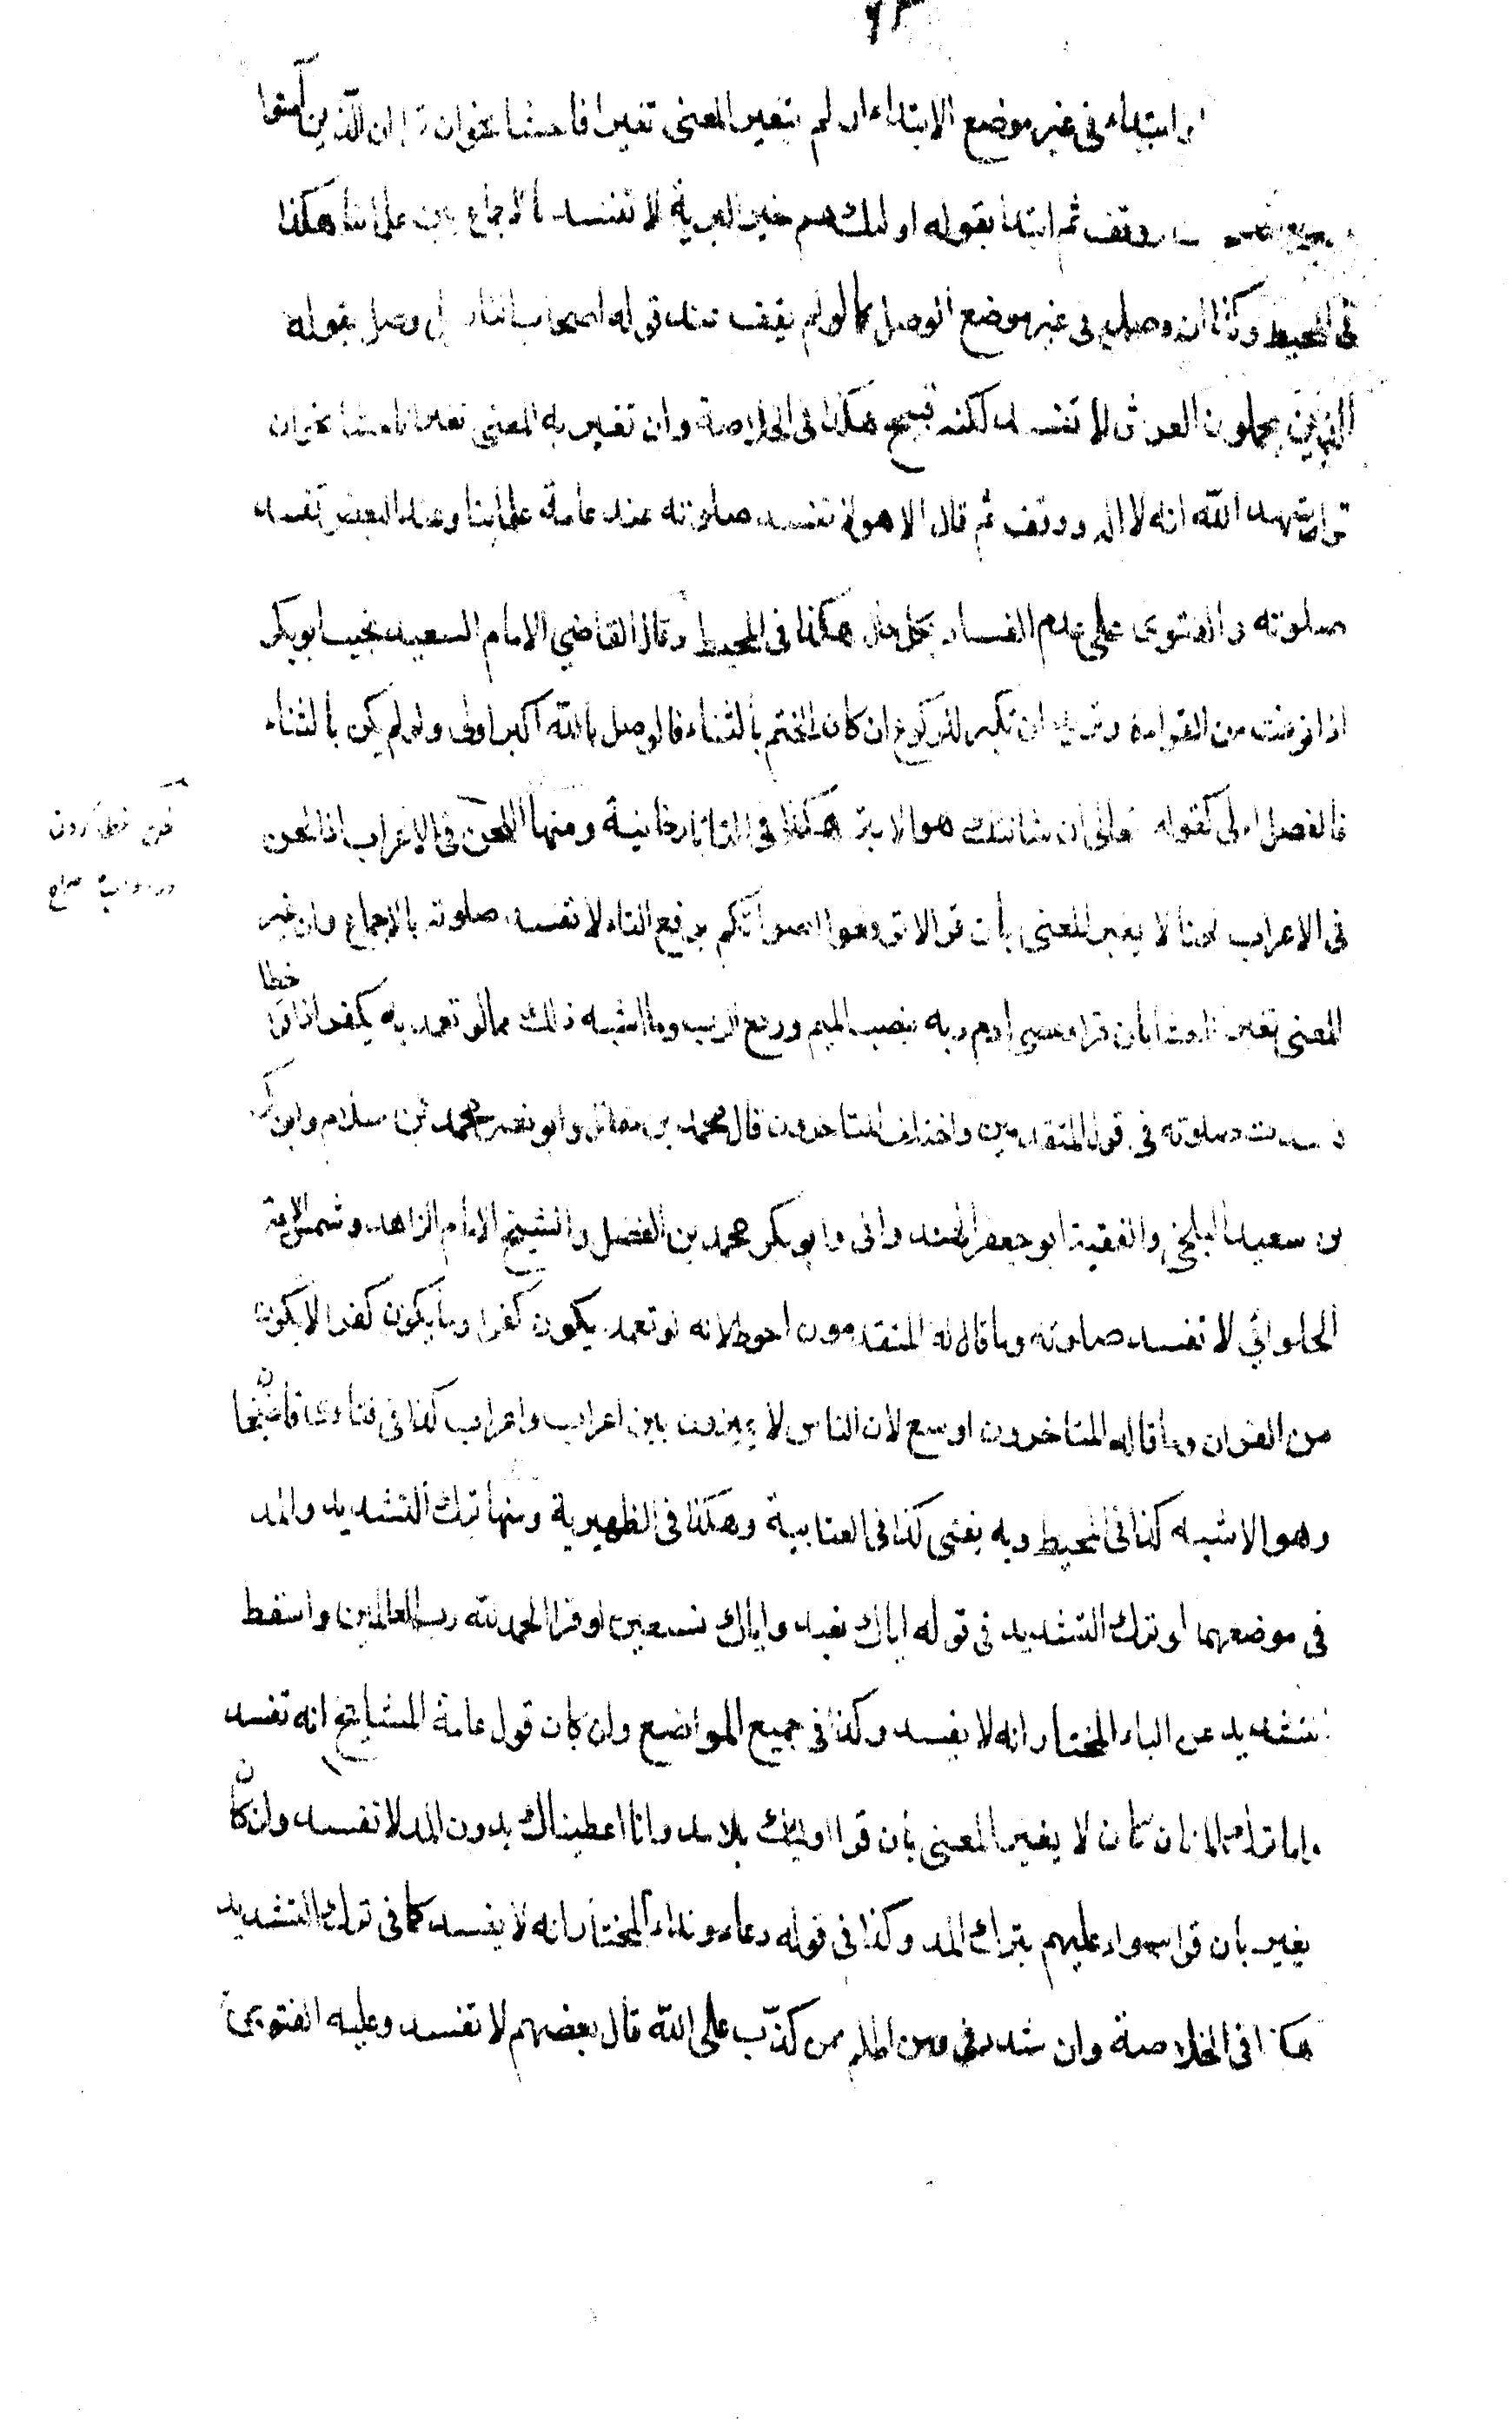 ٦٣
او ابتداء فى غير موضع الابتداء ان لم يتغير المعنى تغيرا فاحشا نحو ان قرا ان الذين آمنوا
ووقف ثم ابتدا بقوله اولئك هم خير البرية لا تفسد بالاجماع بين علمائنا هكذا
فى المحيط وكذا ان وصل فى غير موضع الوصل كما لو لم يقف عند قوله اصحاب النار بل وصل بقوله
الذين يحملون العرش لا تفسد لكنه قبيح هكذا فى الخلاصة وان تغير به المعنى تغيرا فاحشا نحو ان
قرا شهد الله انه لا اله ووقف ثم قال الا هو لا تفسد صلوته عند عامة علمائنا وعند البعض تفسد
صلوته والفتوى على عدم الفساد بكل حال هكذا فى المحيط وقال القاضي الامام السعيد نجيب ابو بكر
اذا فرغت من القراءة وتريد ان تكبر للركوع ان كان الختم بالثناء فالوصل بالله اكبر اولى ولو لم يكن بالثناء
فالفصل اولى كقوله تعالى ان شانئك هو الابتر هكذا فى التاتارخانية ومنها اللحن فى الاعراب اذا لحن
فى الاعراب لحنا لا يغير المعنى بان قرا لا ترفعوا اصواتكم برفع التاء لا تفسد صلوته بالاجماع وان غير
المعنى تغيرا فاحشا بان قرا وعصى ادم ربه بنصب الميم ورفع الرب وما اشبه ذلك مما لو تعمد به يكفر اذا قرا خطا
فسدت صلوته فى قول المتقدمين واختلف المتاخرون قال محمد بن مقاتل وابو نصر محمد بن سلام وابو بكر
بن سعيد البلخي والفقيه ابو جعفر الهندوانى وابو بكر محمد بن الفضل والشيخ الامام الزاهد وشمس الائمة
الحلوائي لا تفسد صلوته وما قاله المتقدمون احوط لانه لو تعمد يكون كفرا وما يكون كفرا لا يكون
من القران وما قاله المتاخرون اوسع لان الناس لا يميزون بين اعراب واعراب كذا فى فتاوى قاضيخان
وهو الاشبه كذا فى المحيط وبه يفتى كذا فى العتابية وهكذا فى الظهيرية ومنها ترك التشديد والمد
فى موضعهما لو ترك التشديد فى قوله اياك نعبد واياك نستعين او قرا الحمد لله رب العالمين واسقط
التشديد عن الباء المختار انه لا يفسد وكذا فى جميع المواضع وان كان قول عامة المشايخ انه تفسد
واما ترك المد ان كان لا يغير المعنى بان قرا اولئك بلا مد وانا اعطيناك بدون المد لا تفسد وان كان
يغير بان قرا سواء عليهم بترك المد وكذا فى قوله دعاء ونداء المختار انه لا يفسد كما فى ترك التشديد
هكذا فى الخلاصة وان شدد فى ومن اظلم ممن كذّب على الله قال بعضهم لا تفسد وعليه الفتوى